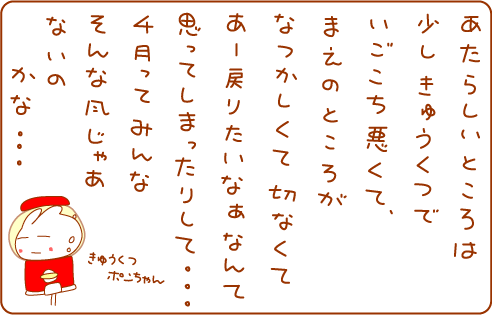 あたらしいところは
少しきゅうくつで
いごこち悪くて、
まえのところが
なつかしくて切なくて
あー戻りたいなぁなんて
思ってしまったりして・・・・
4月ってみんな
そんな風じゃあ
ないの
かな・・・
きゅうくつ
ポンちゃん